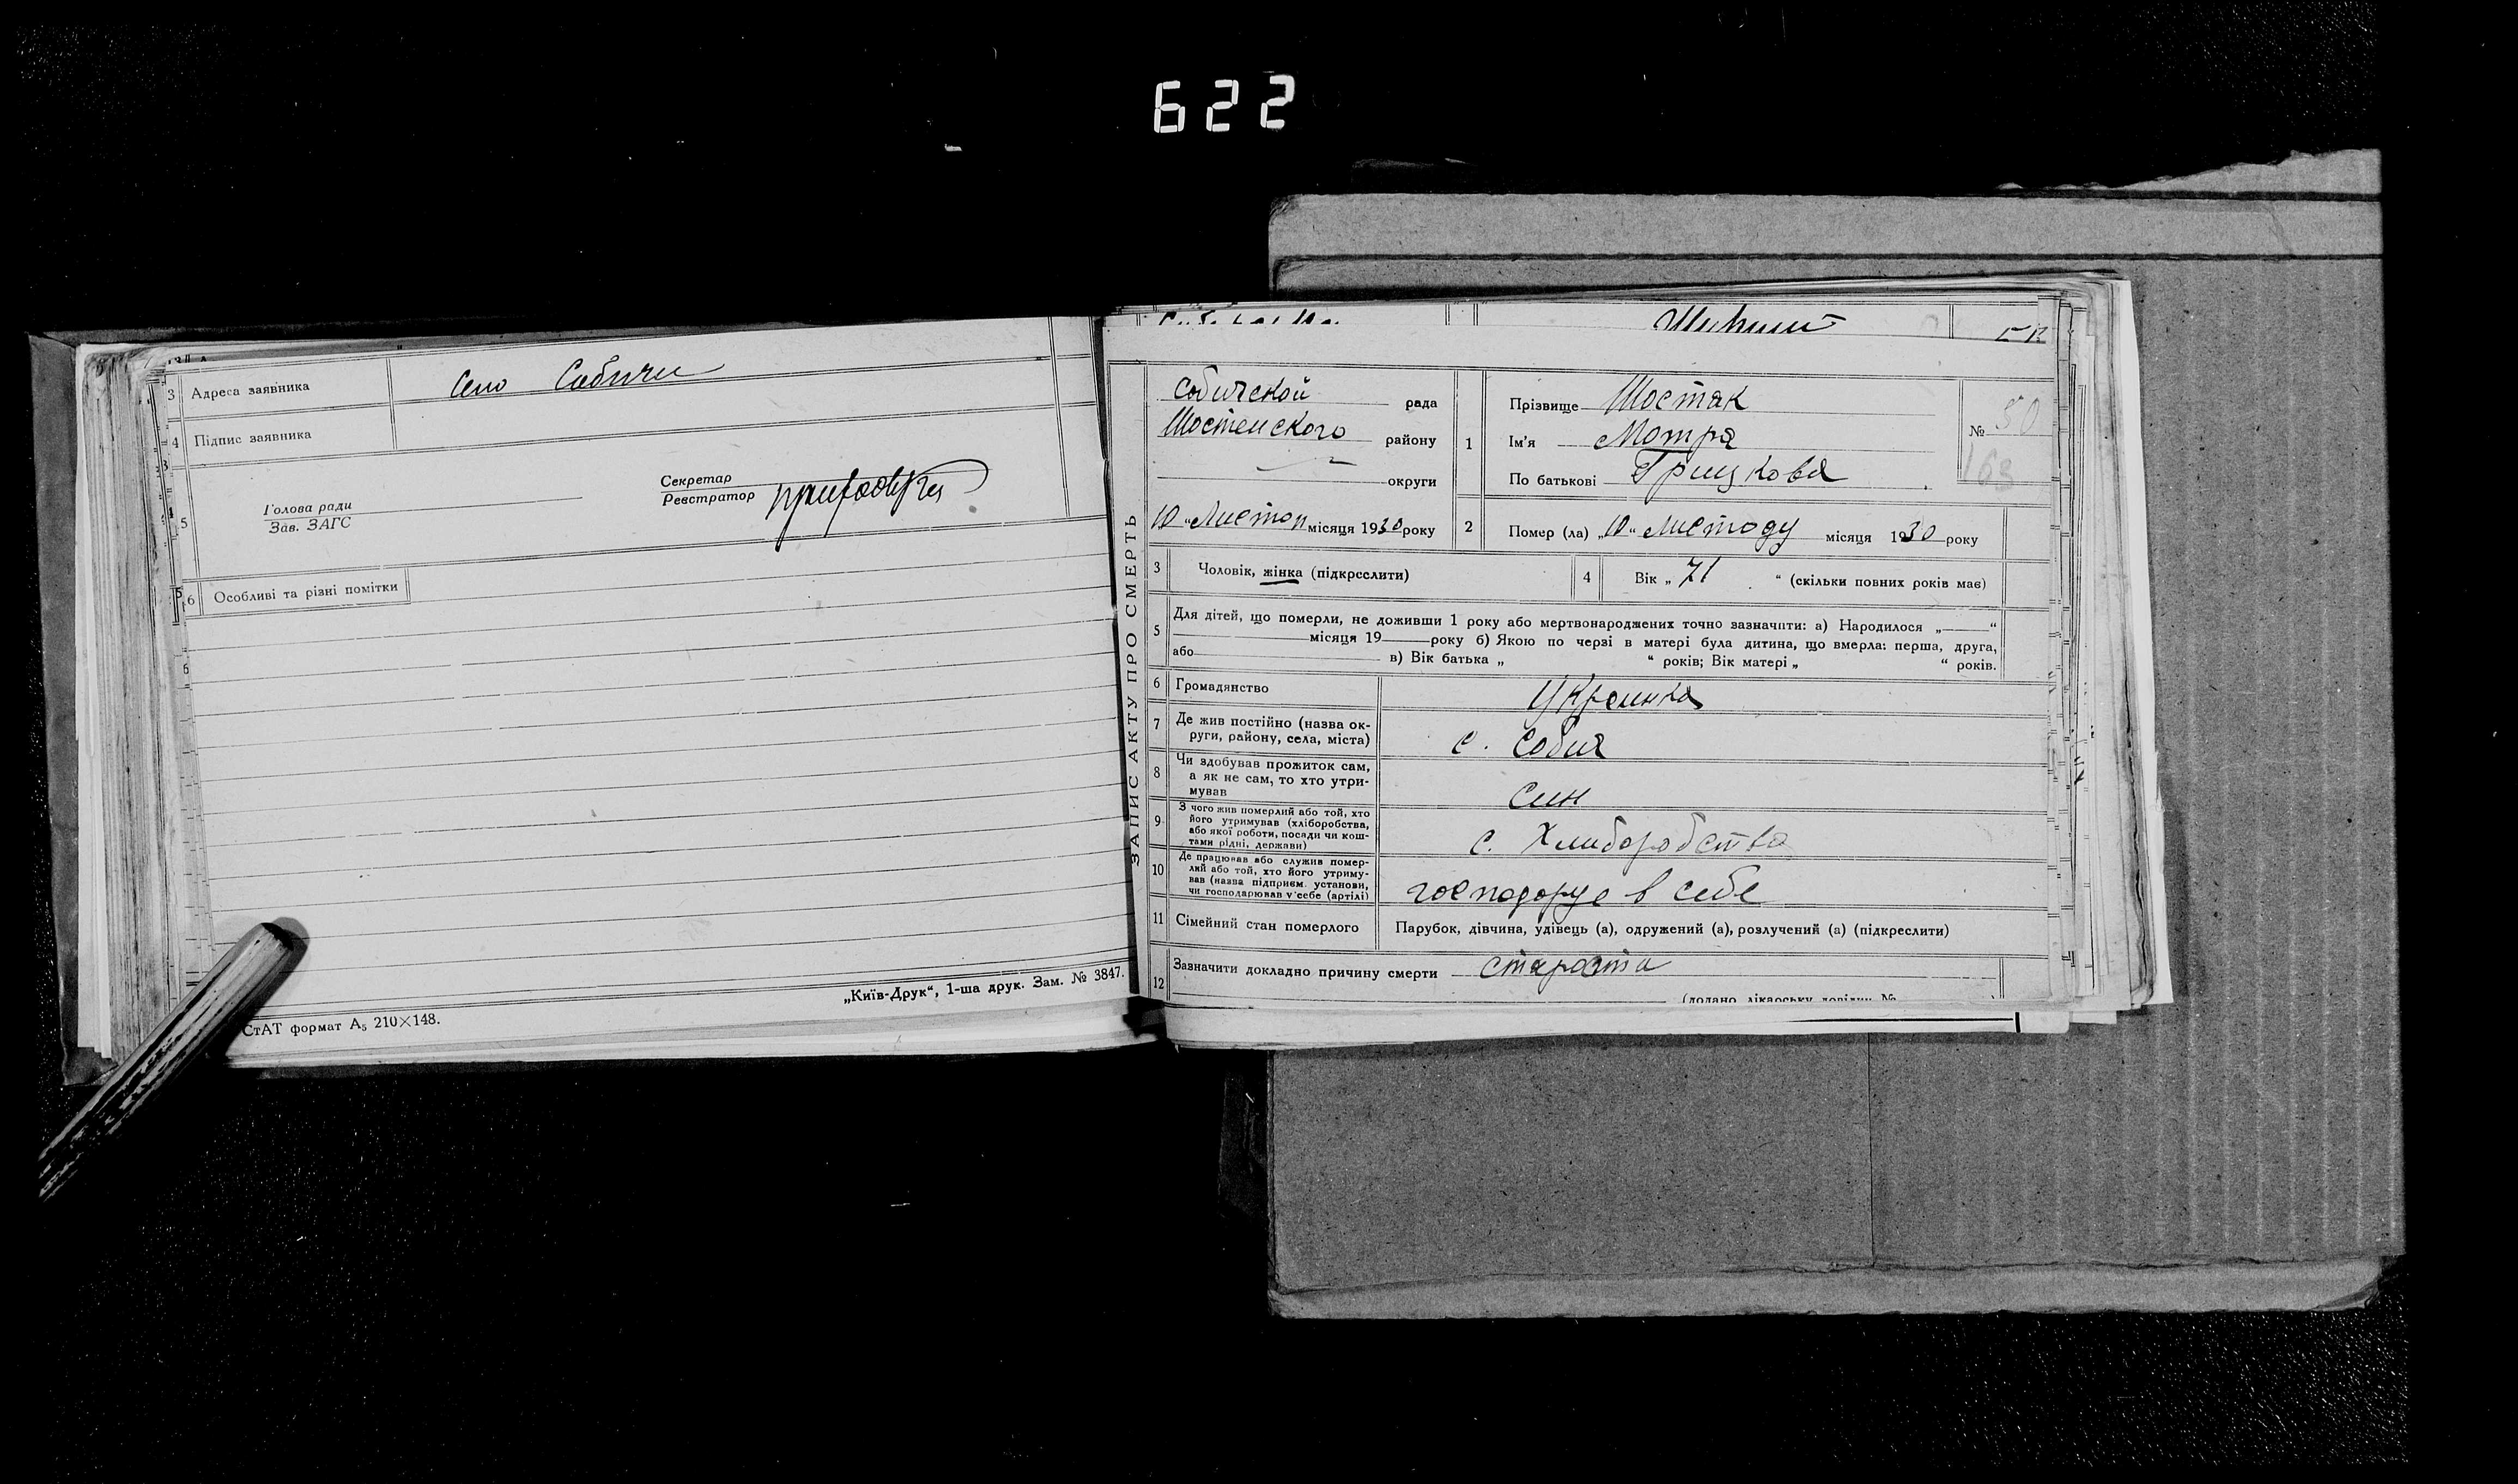 622
3 Адреса заявника Село Собичи
4 Підпис заявника
5 Голова ради
Зав. ЗАГС
Секретар
Реєстратор
6 Особливі та різні помітки
„Київ-Друк“, 1-ша друк. Зам. № 3847.
СтАТ формат А5 210×148.
ЗАПИС АКТУ ПРО СМЕРТЬ
Собичской рада
Шостенского району
округи
10 “ Листоп місяця 1930 року
1 Прізвище Шостак
Ім'я Мотря
По батькові Грицкова
№ 50
163
2 Помер (ла) „10“ Листоду місяця 1930 року
3 Чоловік, жінка (підкреслити)
4 Вік „ 71 “ (скільки повних років має)
5 Для дітей, що померли, не доживши 1 року або мертвонароджених точно зазначити: а) Народилося „ “
місяця 19 року б) Якою по черзі в матері була дитина, що вмерла: перша, друга,
або в) Вік батька „ “ років; Вік матері „ “ років.
6 Громадянство Украинка
7 Де жив постійно (назва ок-
руги, району, села, міста) с. Собич
8 Чи здобував прожиток сам,
а як не сам, то хто утри-
мував син
9 З чого жив померлий або той, хто
його утримував (хліборобства,
або якої роботи, посади чи кош-
тами рідні, держави) с. Хлиборобства
10 Де працював або служив помер-
лий або той, хто його утриму-
вав (назва підприєм. установи,
чи господарював у себе (артілі) господорує в себе
11 Сімейний стан померлого Парубок, дівчина, удівець (а), одружений (а), розлучений (а) (підкреслити)
12 Зазначити докладно причину смерти старость
(додано лікарську довідку №